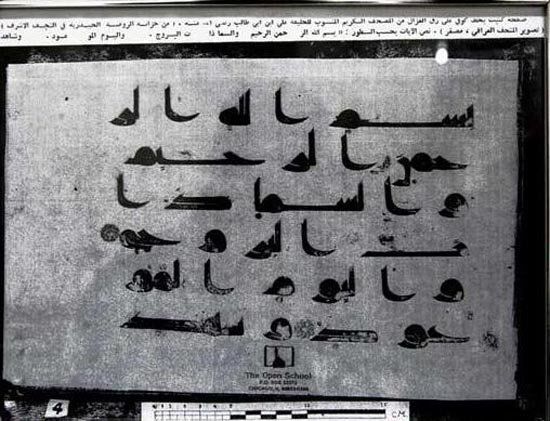 صفحة كتبت بخط كوفي على رق الغزال من المصحف الكريم المنسوب للخليفة علي ابن ابي طالب رضي الله عنه ، من خزانة الروضة الحيدرية في النجف الاشرف
( تصوير المتحف العراقي ، مصغر ) ، نص الآيات بحسب السطور : « بسم الله الر حمن الرحيم والسما ذا ت البروج . واليوم المو عود . وشاهد
بسم ا لله ا لر
حمن ا لر حيم
و ا لسما ذ ا
ت ا لبرو ج
و ا ليو م ا لمو
عو د و شهد
The Open School
P.O. BOX
CHICAGO, IL
4
CM.